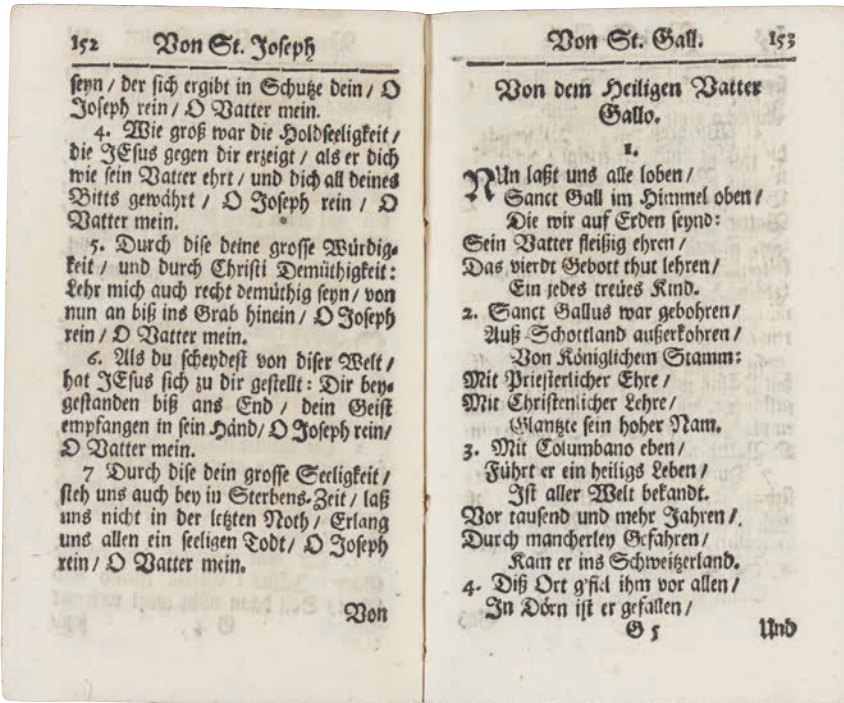 152 Von St. Joseph
seyn / der sich ergibt in Schutze dein / O
Joseph rein / O Vatter mein.
4. Wie groß war die Holdseeligkeit /
die JEsus gegen dir erzeigt / als er dich
wie sein Vatter ehrt / und dich all deines
Bitts gewährt / O Joseph rein / O
Vatter mein.
5. Durch dise deine grosse Würdig-
keit / und durch Christi Demüthigkeit:
Lehr mich auch recht demüthig seyn / von
nun an biß ins Grab hinein / O Joseph
rein / O Vatter mein.
6. Als du scheydest von diser Welt /
hat JEsus sich zu dir gestellt: Dir bey-
gestanden biß ans End / dein Geist
empfangen in sein Händ / O Joseph rein /
O Vatter mein.
7 Durch dise dein grosse Seeligkeit /
steh uns auch bey in Sterbens-Zeit / laß
uns nicht in der letzten Noth / Erlang
uns allen ein seeligen Todt / O Joseph
rein / O Vatter mein.
Von
Von St. Gall. 153
Von dem Heiligen Vatter
Gallo.
1.
NUn laßt uns alle loben /
Sanct Gall im Himmel oben /
Die wir auf Erden seynd:
Sein Vatter fleißig ehren /
Das vierdt Gebott thut lehren /
Ein jedes treües Kind.
2. Sanct Gallus war gebohren /
Auß Schottland außerkohren /
Von Königlichem Stamm:
Mit Priesterlicher Ehre /
Mit Christenlicher Lehre /
Glantzte sein hoher Nam.
3. Mit Columbano eben /
Führt er ein heiligs Leben /
Ist aller Welt bekandt.
Vor tausend und mehr Jahren /
Durch mancherley Gefahren /
Kam er ins Schweitzerland.
4. Diß Ort g'fiel ihm vor allen /
In Dörn ist er gefallen /
G 5 Und